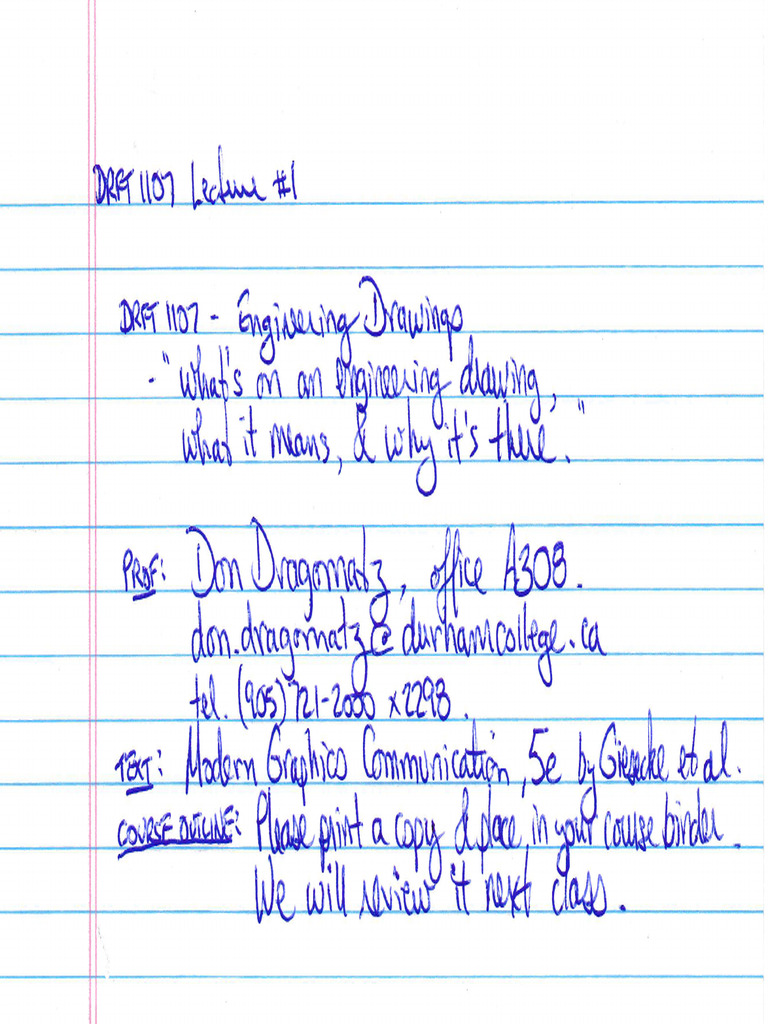 DRFT 1107 Lecture #1
DRFT 1107 - Engineering Drawings
- "what's on an engineering drawing,
what it means, & why it's there."
PROF: Don Dragomatz, office A308.
don.dragomatz@durhamcollege.ca
tel. (905) 721-2000 x2298.
TEXT: Modern Graphics Communication, 5e by Giesecke et al.
COURSE OUTLINE: Please print a copy & place in your course binder.
We will review it next class.